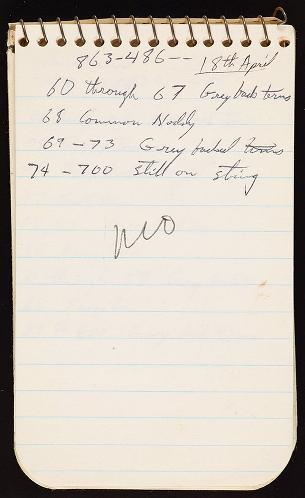 863-486-- 18th April
60 through 67 Grey back terns
68 Common Noddy
69-73 Grey backed terns
74-700 still on string